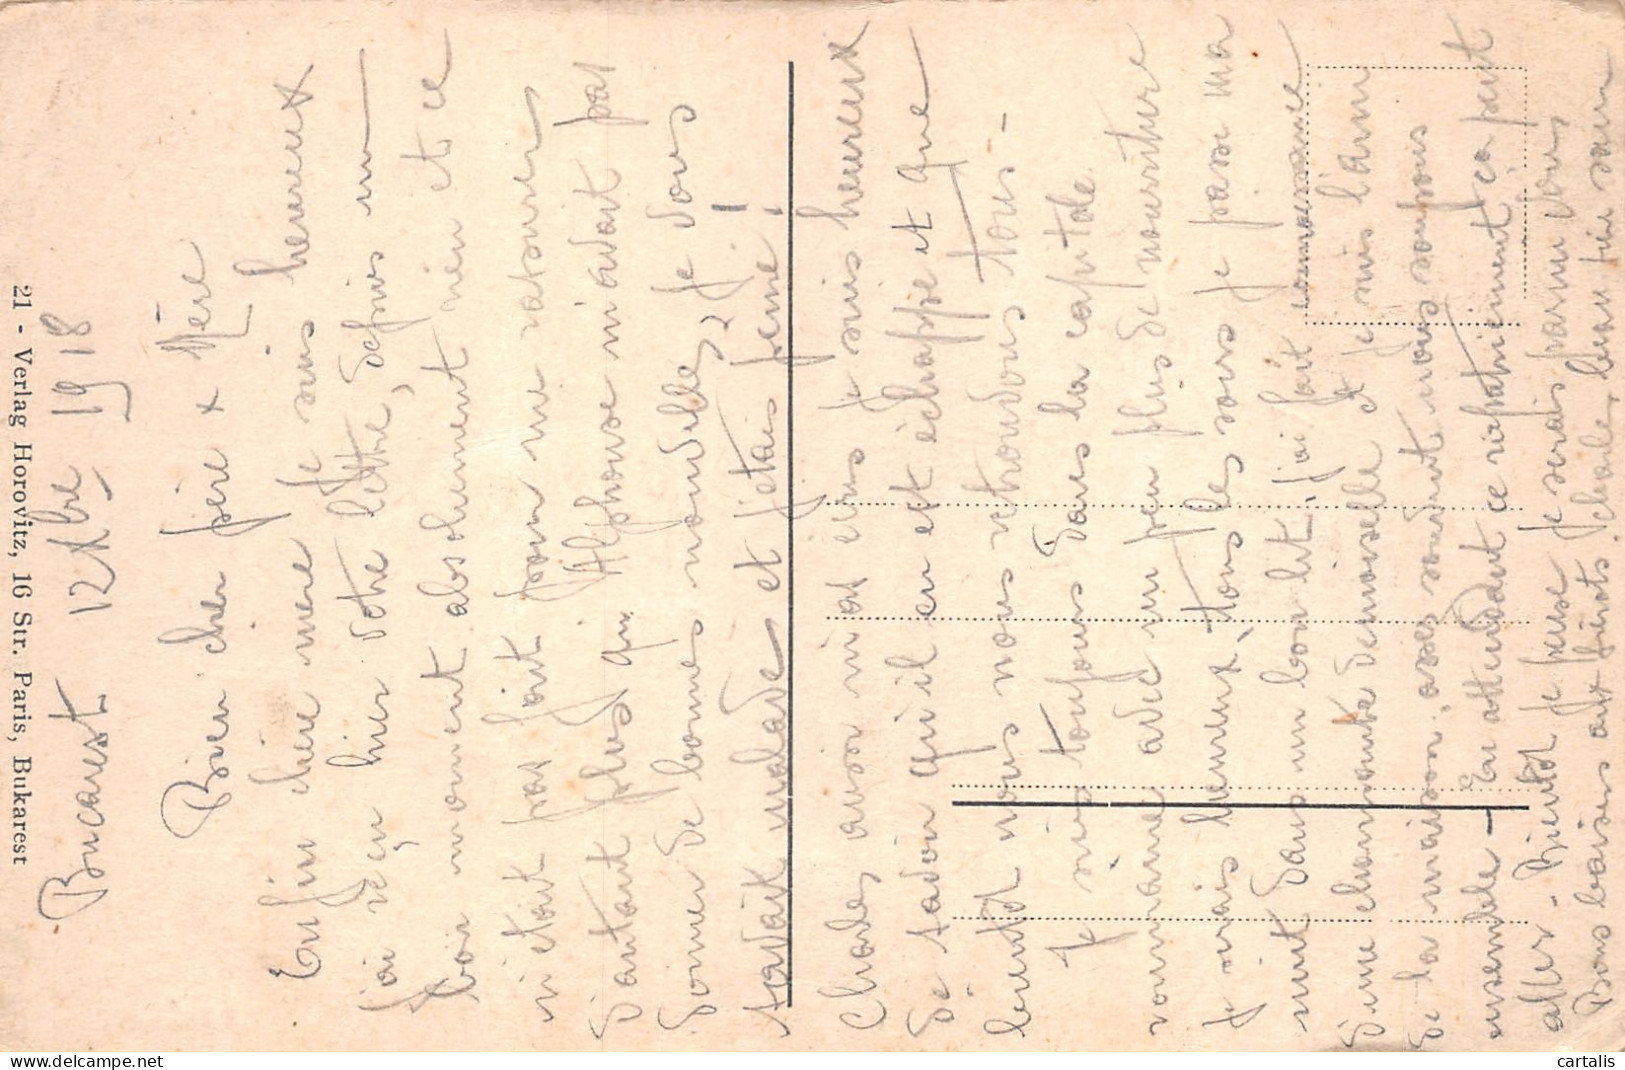 Bucarest 12 Xbre 1918
Bien cher père & Mère
Enfin chère mère je suis heureux
j'ai reçu hier votre lettre, depuis un
bon moment absolument rien et ce
n'était pas fait pour me rassurer
d'autant plus qu'Alphonse m'avait pas
donner de bonnes nouvelles, je vous
savait malade et j'étais peiné!
Charles aussi m'as écris je suis heureux
de savoir qu'il en est échappé et que
bientôt nous nous retrouvous tous -
Je suis toujours dans la capitole
roumaine avec un peu plus de nourriture
je vrais lement, tous les jours je passe ma
nuit dans un bon lit, j'ai fait connaissance
d'une charmante demoiselle et je suis l'ami
de la maison, assez souvent nous soupons
ensemble - En attendant ce rapatriement ça peut
aller. Bientôt je pense je serais parmi vous
Bons baisers aux frérots
21 - Verlag Horovitz, 16 Str. Paris, Bukarest
cartalis